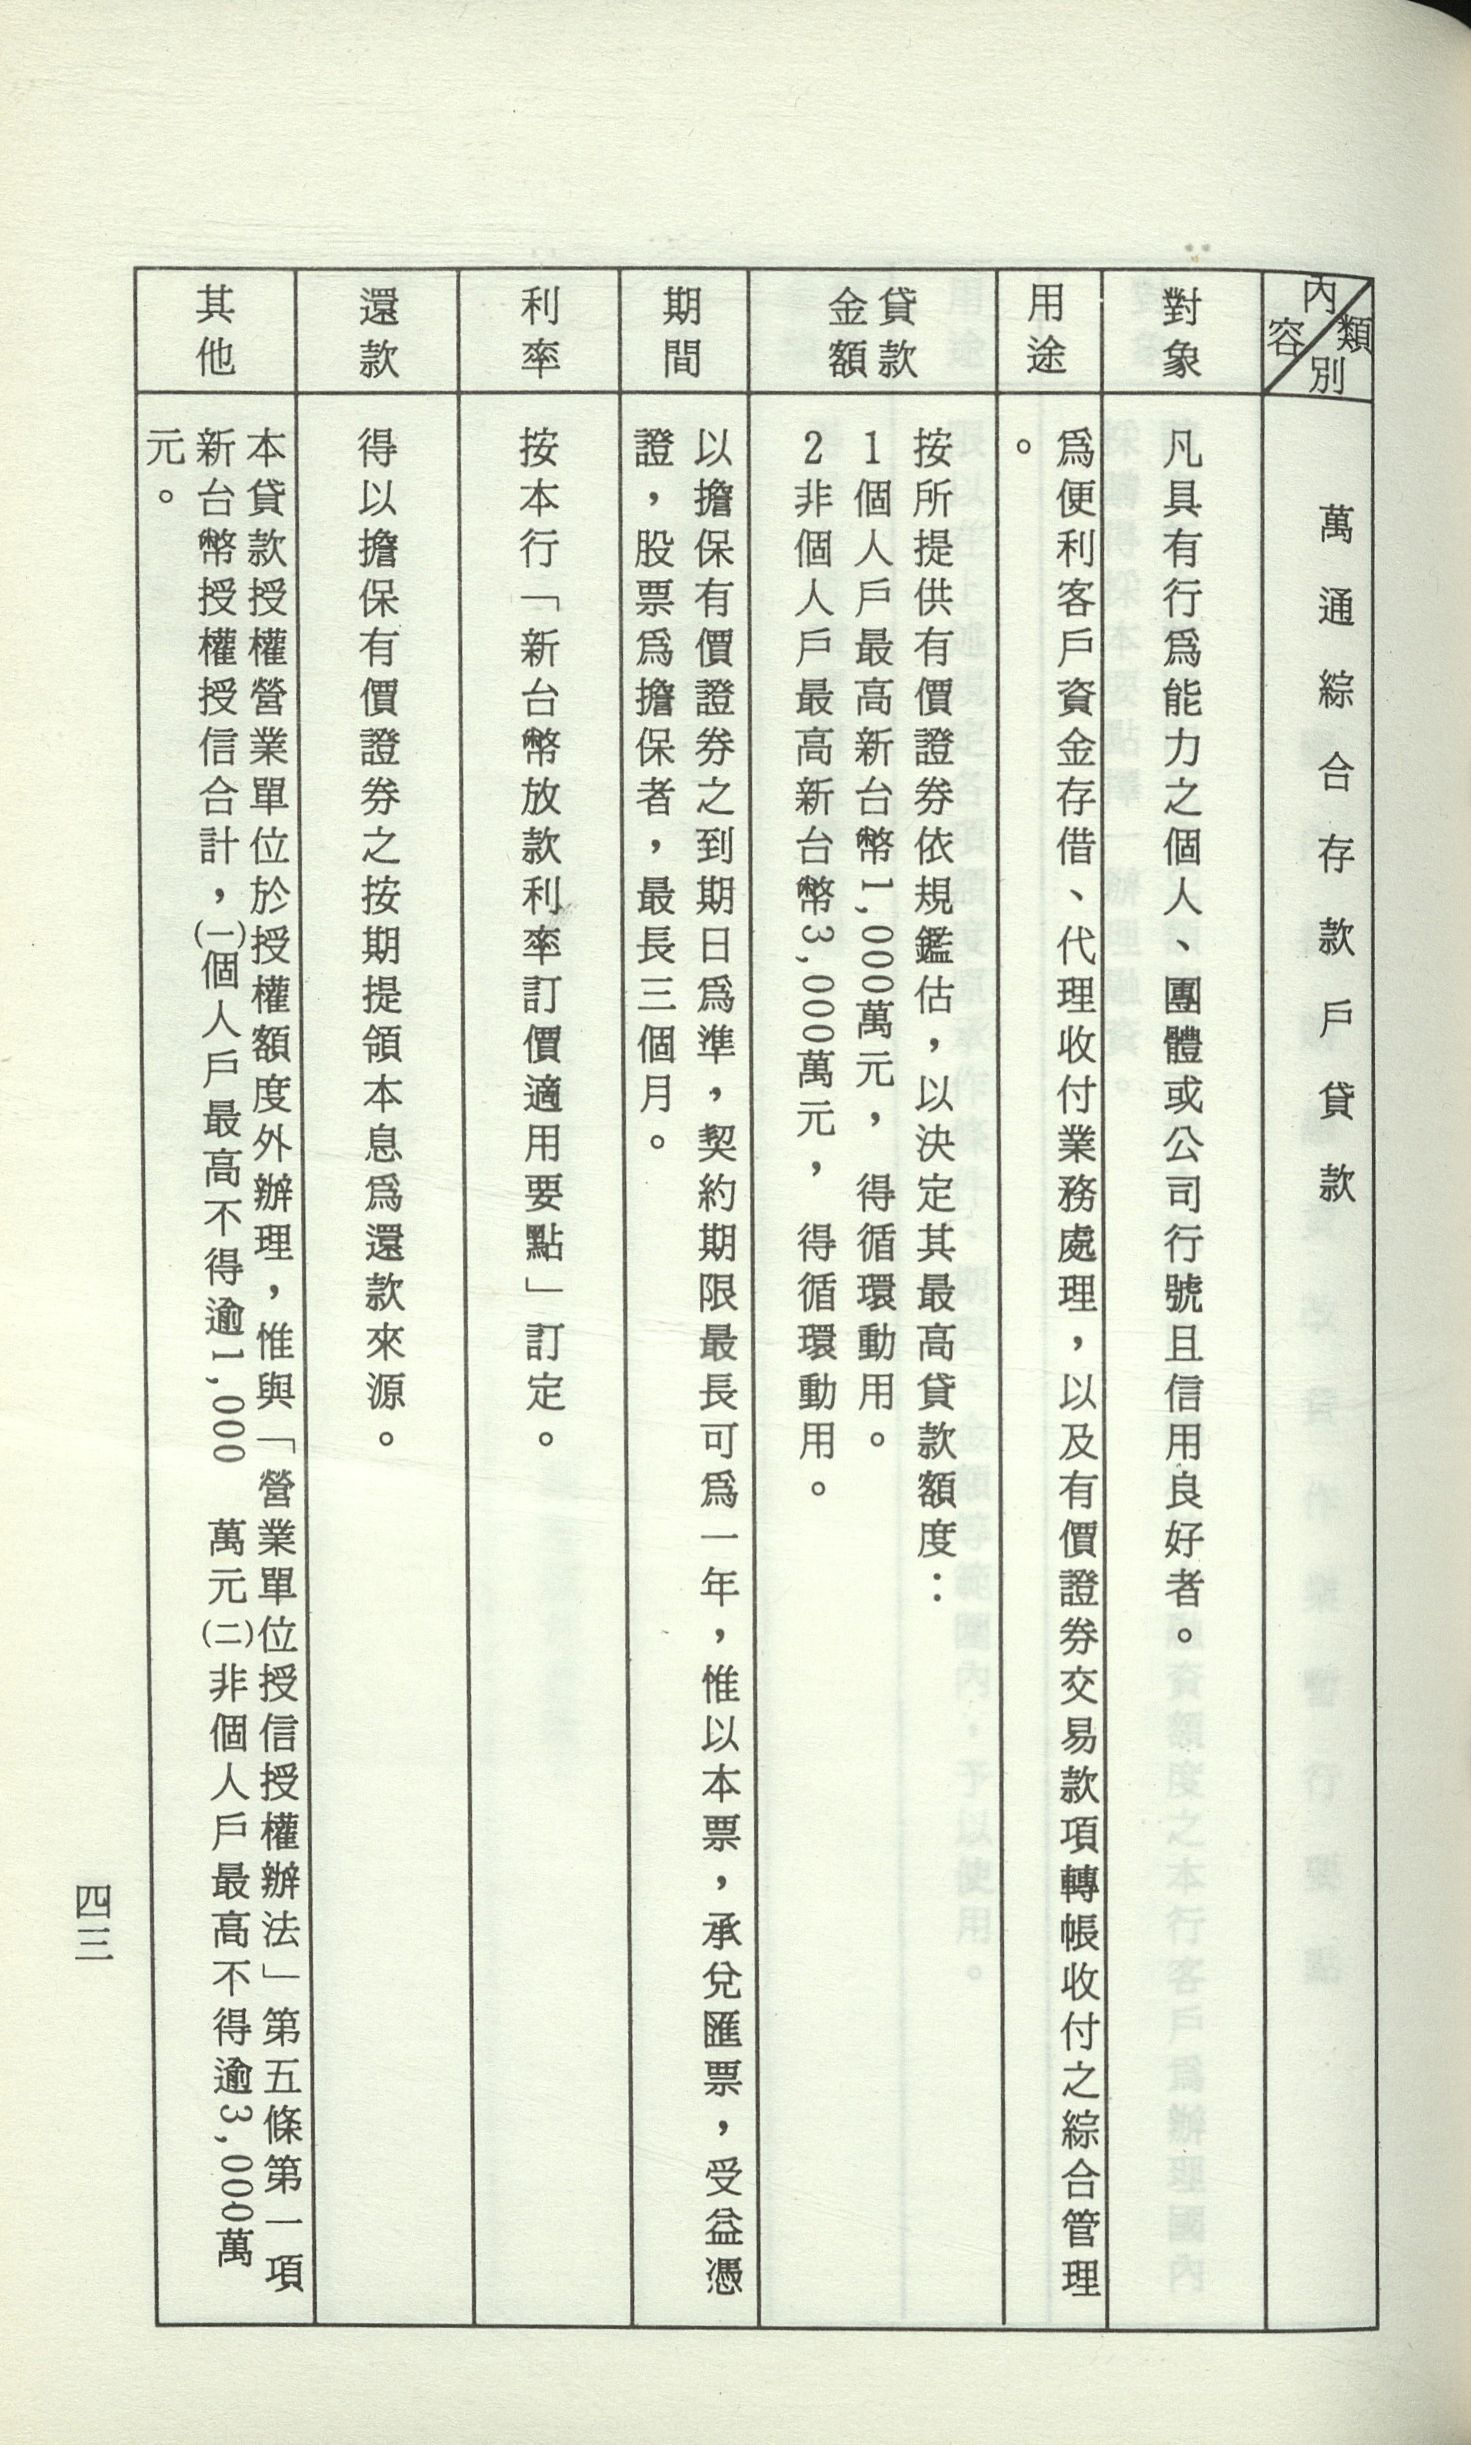 類別
內容
萬通綜合存款戶貸款
對象
凡具有行爲能力之個人、團體或公司行號且信用良好者。
用途
爲便利客戶資金存借、代理收付業務處理，以及有價證券交易款項轉帳收付之綜合管理
。
貸款
金額
按所提供有價證券依規鑑估，以決定其最高貸款額度：
1個人戶最高新台幣1,000萬元，得循環動用。
2非個人戶最高新台幣3,000萬元，得循環動用。
期間
以擔保有價證券之到期日爲準，契約期限最長可爲一年，惟以本票，承兌匯票，受益憑
證，股票爲擔保者，最長三個月。
利率
按本行「新台幣放款利率訂價適用要點」訂定。
還款
得以擔保有價證券之按期提領本息爲還款來源。
其他
本貸款授權營業單位於授權額度外辦理，惟與「營業單位授信授權辦法」第五條第一項
新台幣授權授信合計，㈠個人戶最高不得逾1,000 萬元㈡非個人戶最高不得逾3,000萬
元。
四三